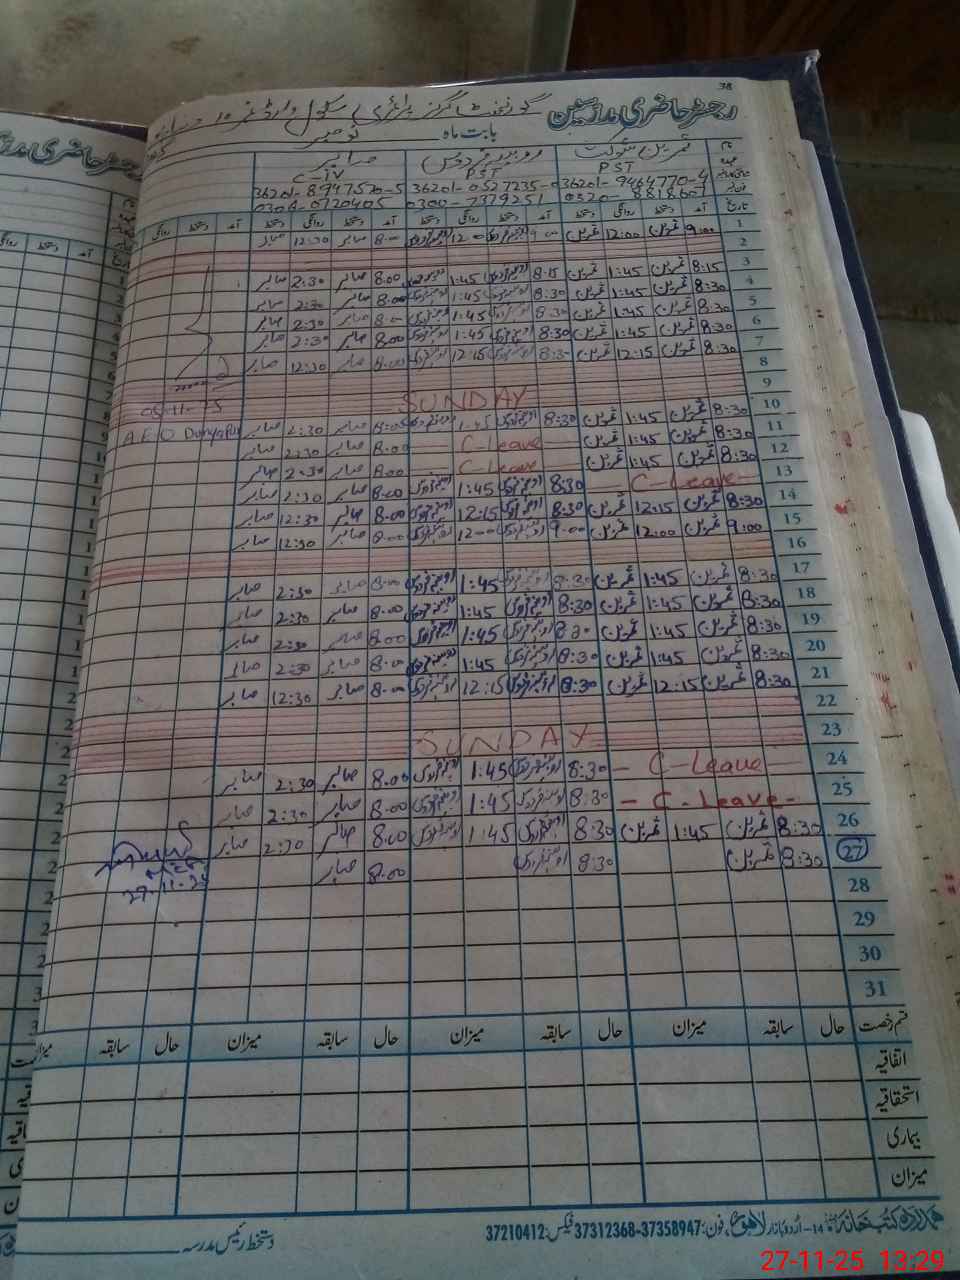 38
رجسٹر حاضری مدرسین گورنمنٹ گرلز پرائمری سکول وارڈ نمبر 10
بابت ماہ نومبر
ثمرین شوکت روبینہ فردوس صابر
PST PST C-IV
36201-9464770-4 36201-0527235-0 36201-8997520-5
0320-8818607 0300-7379251 0306-0720405
تاریخ آمد دستخط روانگی دستخط آمد دستخط روانگی دستخط آمد دستخط روانگی دستخط آمد دستخط روانگی
1 9:00 ثمرین 12:00 ثمرین 9:00 12:00 8:00 صابر 12:30 صابر
2
3 8:15 ثمرین 1:45 ثمرین 8:15 1:45 8:00 صابر 2:30 صابر
4 8:30 ثمرین 1:45 ثمرین 8:30 1:45 8:00 صابر 2:30 صابر
5 8:30 ثمرین 1:45 ثمرین 8:30 1:45 8:00 صابر 2:30 صابر
6 8:30 ثمرین 1:45 ثمرین 8:30 1:45 8:00 صابر 2:30 صابر
7 8:30 ثمرین 12:15 ثمرین 8:30 12:15 8:00 صابر 12:30 صابر
8
05-11-25
9 SUNDAY
10 8:30 ثمرین 1:45 ثمرین 8:30 1:45 8:00 صابر 2:30 صابر A.E.O Dunyapur
11 8:30 ثمرین 1:45 ثمرین C-Leave 8:00 صابر 2:30 صابر
12 8:30 ثمرین 1:45 ثمرین C-Leave 8:00 صابر 2:30 صابر
13 C-Leave 8:30 1:45 8:00 صابر 2:30 صابر
14 8:30 ثمرین 12:15 ثمرین 8:30 12:15 8:00 صابر 12:30 صابر
15 9:00 ثمرین 12:00 ثمرین 9:00 12:00 8:00 صابر 12:30 صابر
16
17 8:30 ثمرین 1:45 ثمرین 8:30 1:45 8:00 صابر 2:30 صابر
18 8:30 ثمرین 1:45 ثمرین 8:30 1:45 8:00 صابر 2:30 صابر
19 8:30 ثمرین 1:45 ثمرین 8:30 1:45 8:00 صابر 2:30 صابر
20 8:30 ثمرین 1:45 ثمرین 8:30 1:45 8:00 صابر 2:30 صابر
21 8:30 ثمرین 12:15 ثمرین 8:30 12:15 8:00 صابر 12:30 صابر
22
23 SUNDAY
24 C-Leave 8:30 1:45 8:00 صابر 2:30 صابر
25 C-Leave 8:30 1:45 8:00 صابر 2:30 صابر
26 8:30 ثمرین 1:45 ثمرین 8:30 1:45 8:00 صابر 2:30 صابر
27 8:30 ثمرین 8:30 8:00 صابر
27-11-25
28
29
30
31
قسم رخصت حال سابقہ میزان حال سابقہ میزان حال سابقہ میزان حال سابقہ میزان
اتفاقیہ
استحقاقیہ
بیماری
میزان
ہمدرد کتب خانہ 14-اردو بازار لاہور، فون: 37358947-37312368 فیکس: 37210412
دستخط رئیس مدرسہ
27-11-25 13:29